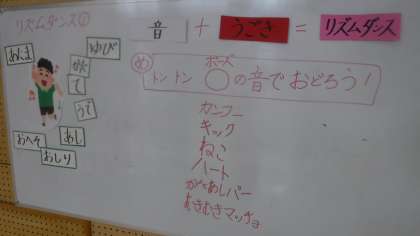 リズムダンス①
音 + うごき = リズムダンス
あたま
ゆび
かた
て
うで
あし
おしり
おへそ
め
ポーズ
トン トン ○の音でおどろう!
カンフー
キック
ねこ
ハート
かたあしパー
むきむきマッチョ